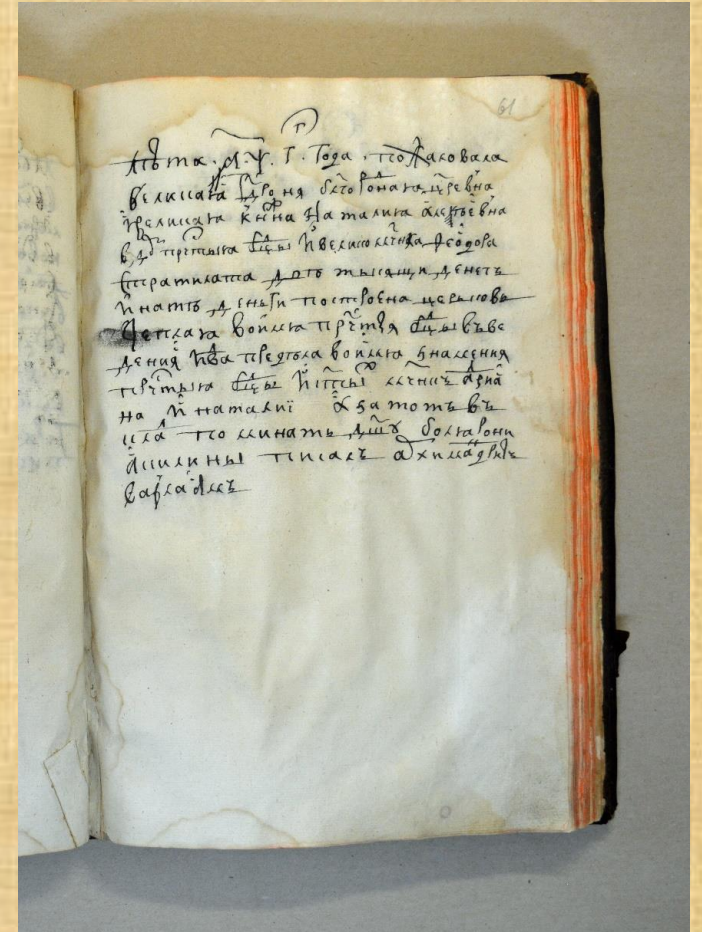 61
г҃
Лѣта ҂аѱг года пожаловала
великая гд҃рня бл҃городная црⷭ҇евна
и великая кн҃жна Наталия Алеѯѣевна
в до прⷭ҇тыя бц҃ы и великомчн҃ка Ѳеодора
Стратилата тысящи денегъ
и на тѣ деньги построена церьковь
теплая во имя прⷭ҇тыя бц҃ы въве
дения и два предѣла во имя знамения
прⷭ҇тыя бц҃ы и мчн҃цъ Адриа
на и Наталиї а за тотъ въ
кладъ поминать дш҃у болярони
Анны писалъ архимандритъ
Варлаамъ